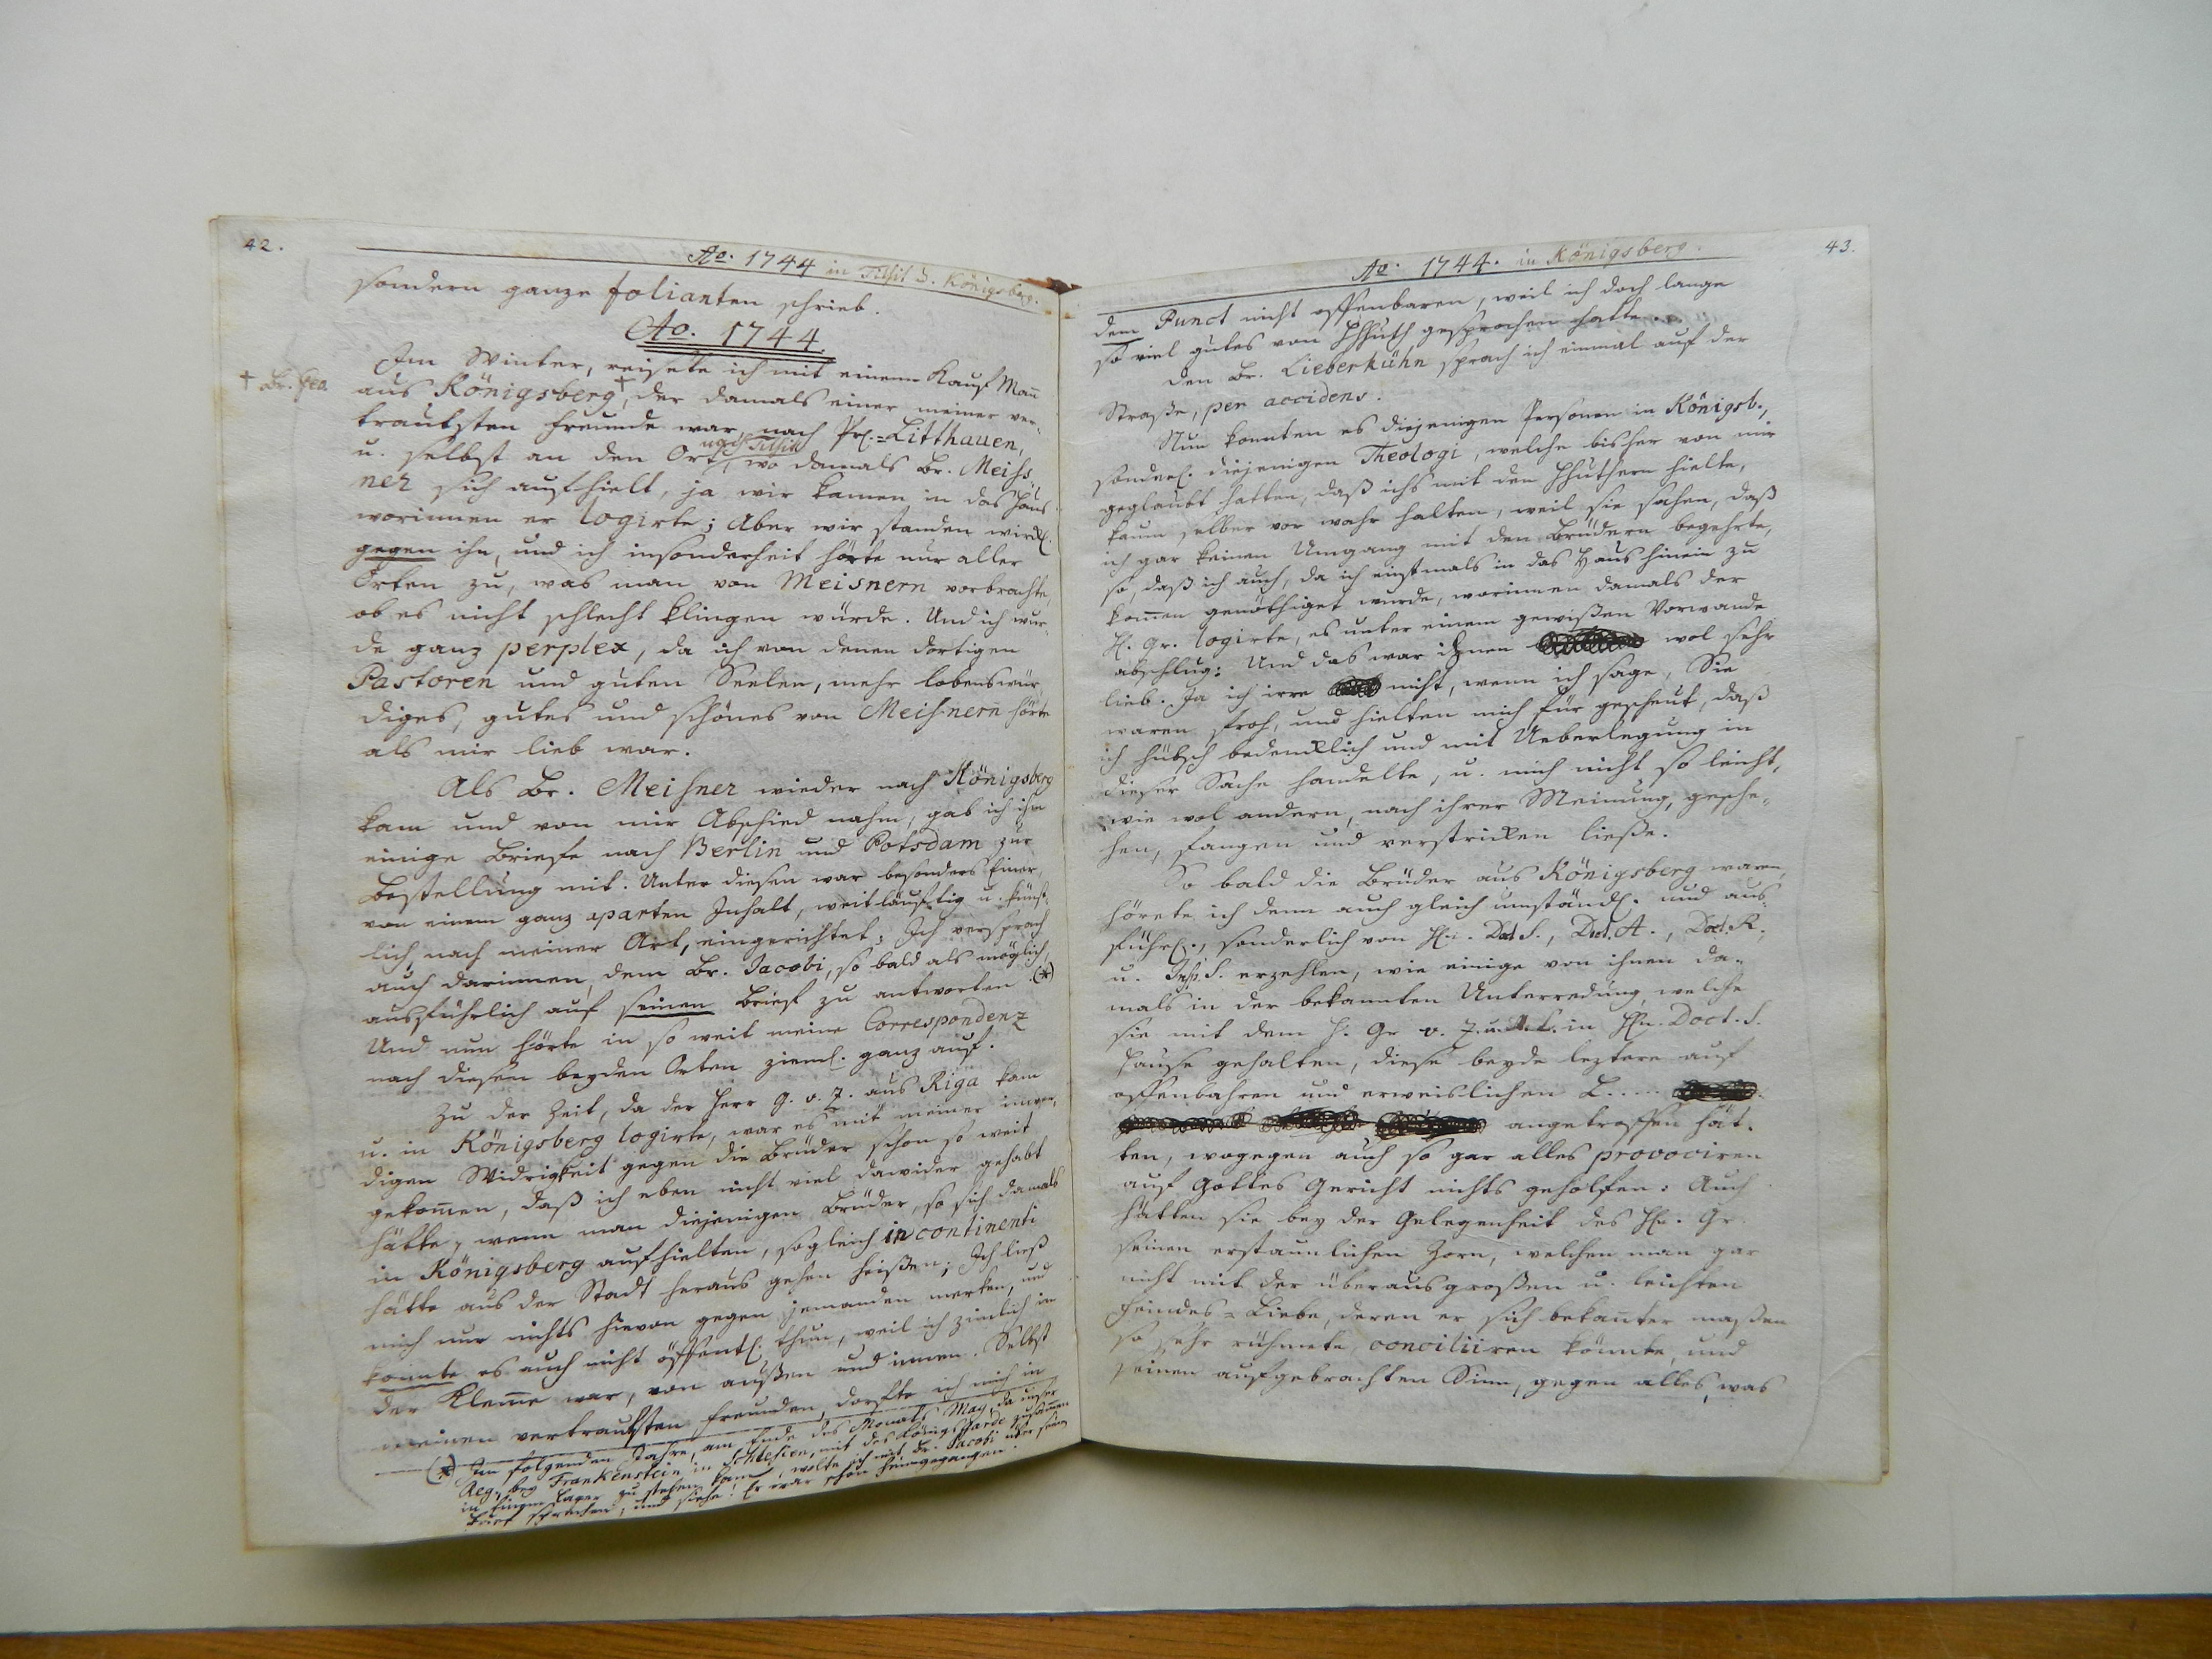 42.
Ao. 1744 in Tilsit u. Königsberg.
sondern ganze folianten schrieb.
Ao. 1744.
Im Winter, reisete ich mit einem Kauf Mañ
† Br.
aus Königsberg,† der damals einer meiner ver-
trautsten Freunde war, nach Pr.=Litthauen,
nach Tilsit
u. selbst an den Ort, wo damals Br. Meiss-
ner sich aufhielt, ja wir kamen in das Haus
worinnen er logirte; Aber wir standen
gegen ihn, und ich insonderheit hörte nur aller
Orten zu, was man von Meisnern vorbrachte,
ob es nicht schlecht klingen würde. Und ich wur-
de ganz perplex, da ich von denen dortigen
Pastoren und guten Seelen, mehr lobenswür-
diges, gutes und schönes von Meisnern hörte
als mir lieb war.
Als Br. Meisner wieder nach Königsberg
kam und von mir Abschied nahm, gab ich ihm
einige Briefe nach Berlin und Potsdam zur
Bestellung mit. Unter diesen war besonders Einer,
von einem ganz aparten Inhalt, weitläuftig u. künst-
lich nach meiner Art, eingerichtet; Ich versprach
auch darinnen, dem Br. Jacobi, so bald als möglich,
ausführlich auf seinen Brief zu antworten. (*)
Und nun hörte in so weit meine Correspondenz
nach diesen beyden Orten zieml. ganz auf.
Zu der Zeit, da der Herr G. v. Z. aus Riga kam
u. in Königsberg logirte, war es mit meiner inwen-
digen Widrigkeit gegen die Brüder schon so weit
gekom̄en, daß ich eben nicht viel dawider gehabt
hätte, wenn man diejenigen Brüder, so sich damals
in Königsberg aufhielten, sogleich in continenti
hätte aus der Stadt heraus gehen heißen; Ich ließ
mich nur nichts hievon gegen jemanden merken, und
konnte es auch nicht öffentl. thun, weil ich ziemlich in
der Klem̄e war, von außen und innen. Selbst
meinen vertrautsten Freunden dorfte ich mich in
(*) Im folgenden Jahre, am Ende des Monats May, da unser
Reg. bey Frankenstein in Schlesien, mit des Königs Garde zusam̄en
in Einem Lager zu stehen kam, wolte ich mit Br. Jacobi über seinen
Brief sprechen, und siehe! Er war schon heimgegangen.
43.
Ao. 1744. in Königsberg.
dem Punct nicht offenbaren, weil ich doch lange
so viel gutes von HHuth gesprochen hatte.
Den Br. Lieberkühn sprach ich einmal auf der
Straße, per accidens.
Nun konnten es diejenigen Personen in Königsb.,
sonderl. diejenigen Theologi, welche bisher von mir
geglaubt hatten, daß ichs mit den HHuthern hielte,
kaum selber vor wahr halten, weil sie sahen, daß
ich gar keinen Umgang mit den Brüdern begehrte,
so, daß ich auch, da ich einstmals in das Haus hinein zu
kom̄en genöthiget wurde, worinnen damals der
H. Gr. logirte, es unter einem gewißen Vorwande
abschlug: Und das war ihnen wol sehr
lieb. Ja ich irre nicht, wenn ich sage, Sie
waren froh, und hielten mich für gescheut, daß
ich hübsch bedenklich und mit Ueberlegung in
dieser Sache handelte, u. mich nicht so leicht,
wie wol andern, nach ihrer Meinung, gesche-
hen, fangen und verstricken ließe.
So bald die Brüder aus Königsberg waren,
hörete ich denn auch gleich umständl. und aus-
führl., sonderlich von Hn. Doct. S., Doct. A., Doct. K.,
u. Insp. S. erzehlen, wie einige von ihnen da-
mals in der bekannten Unterredung, welche
sie mit dem H. Gr. v. Z. u. in Hn. Doct. S.
Hause gehalten, diese beyde leztere auf
offenbahren und erweislichen L.....
angetroffen hät-
ten, wogegen auch so gar alles provociren
auf Gottes Gericht nichts geholfen: Auch
hätten sie bey der Gelegenheit des Hn. Gr.
seinen erstaunlichen Zorn, welchen man gar
nicht mit der überaus großen u. leichten
Feindes=Liebe, deren er sich bekañter maßen
so sehr rühmete conciliiren könnte, und
seinen aufgebrachten Sinn, gegen alles, was